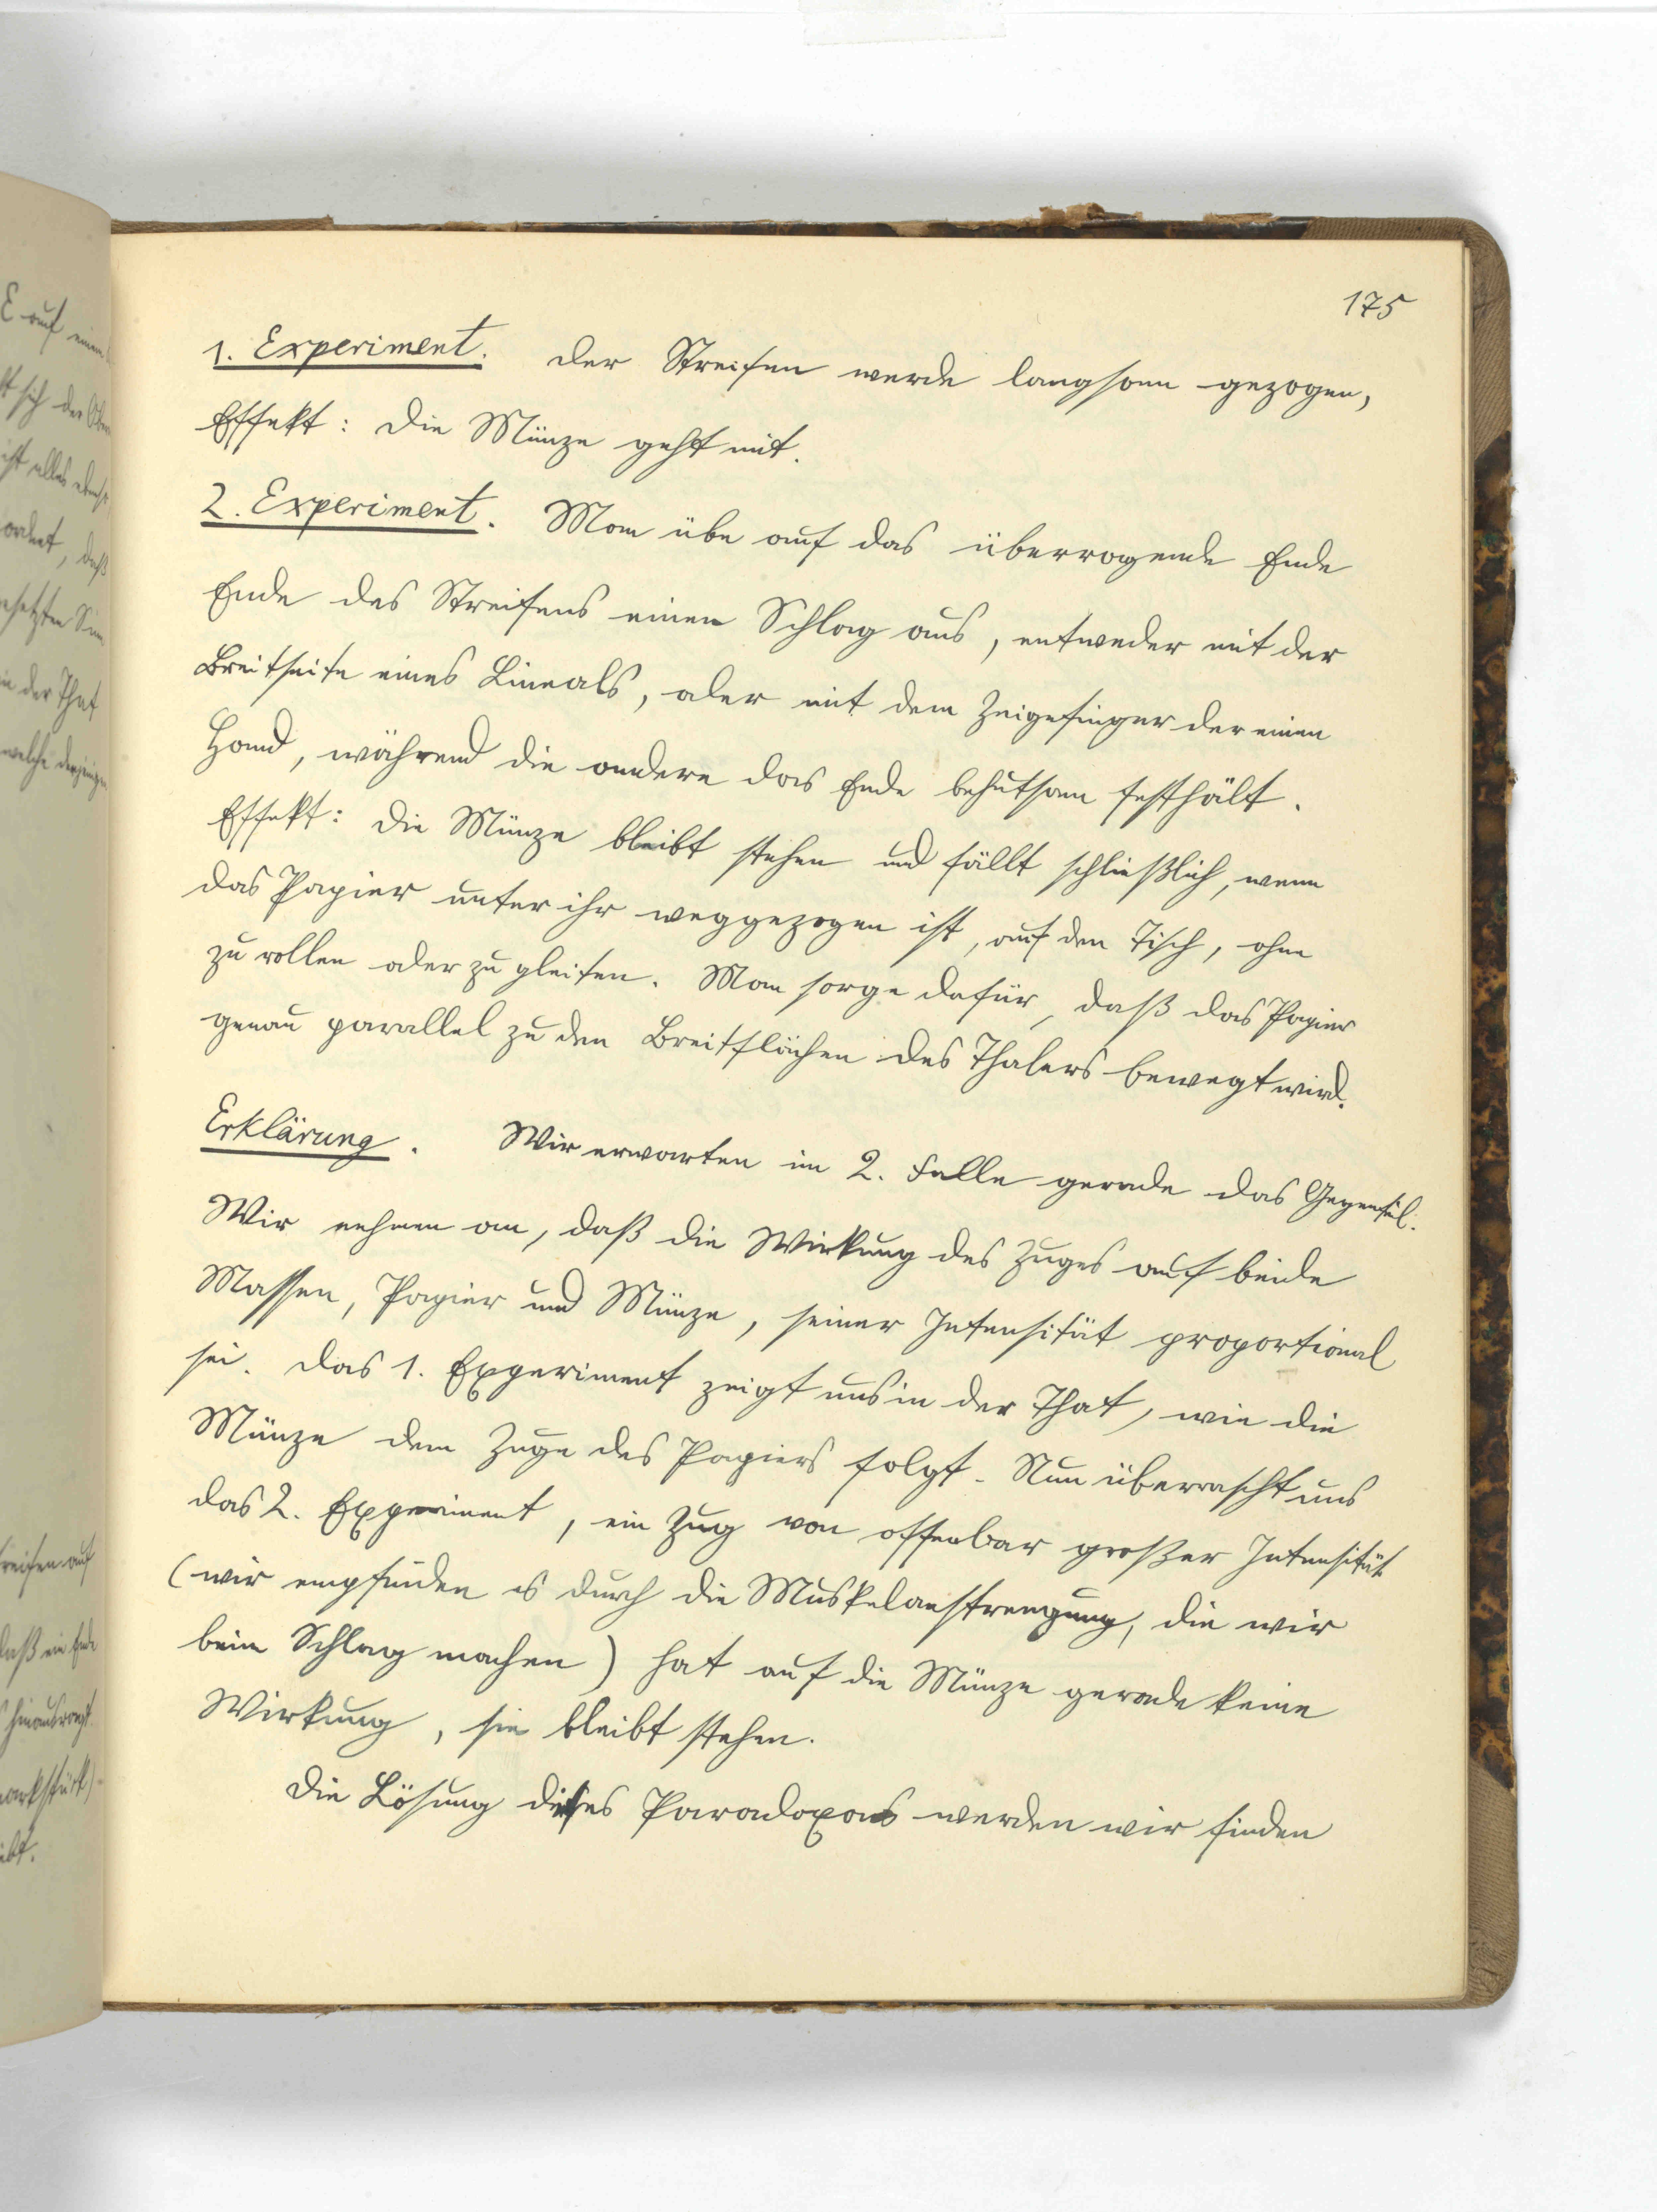 175
1. Experiment. Der Streifen werde langsam gezogen,
Effekt: Die Münze geht mit.
2. Experiment. Man übe auf das überragende Ende
Ende des Streifens einen Schlag aus, entweder mit der
Breitseite eines Lineals, oder mit dem Zeigefinger der einen
Hand, während die andere das Ende behutsam festhält.
Effekt: Die Münze bleibt stehen und fällt schließlich, wenn
das Papier unter ihr weggezogen ist, auf den Tisch, ohne
zu rollen oder zu gleiten. Man sorge dafür, daß das Papier
genau parallel zu den Breitflächen des Thalers bewegt wird.
Erklärung. Wir erwarten im 2. Falle gerade das Gegenteil.
Wir nehmen an, daß die Wirkung des Zuges auf beide
Massen, Papier und Münze, seiner Intensität proportional
sei. Das 1. Experiment zeigt uns in der That, wie die
Münze dem Zuge des Papiers folgt. Nun überrascht uns
das 2. Experiment, ein Zug von offenbar großer Intensität
(wir empfinden es durch die Muskelanstrengung, die wir
beim Schlag machen) hat auf die Münze gerade keine
Wirkung, sie bleibt stehen.
Die Lösung dieses Paradoxons werden wir finden
E auf einen
sich der
ist alles
ordnet, daß
in der That
welche derjenigen
reifen auf
daß ein Ende
hinausragt
markstück)